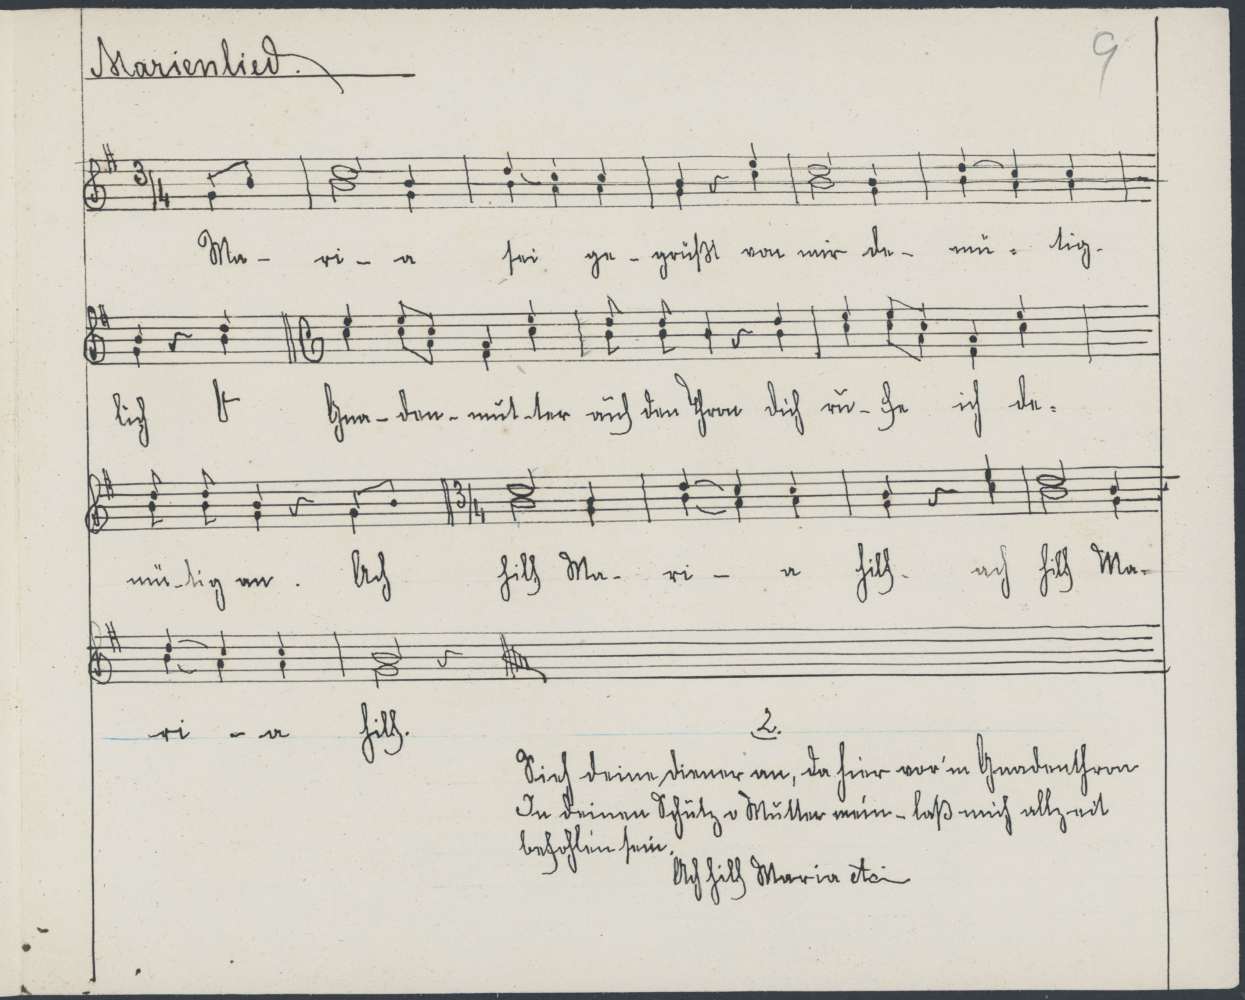 Marienlied.
9
3/4
Ma- ri- a sei ge- grüßt von mir de- mü- tig-
lich O Gna- den- mut- ter auch den Thron dich ru- fe ich de-
3/4
mü- tig an. Ach hilf Ma- ri- a hilf- ach hilf Ma-
ri- a hilf.
2.
Sieh deine Diener an, da hier vor'm Gnadenthron
In deinen Schutz o Mutter mein- laß mich allzeit
befohlen sein.
Ach hilf Maria etc